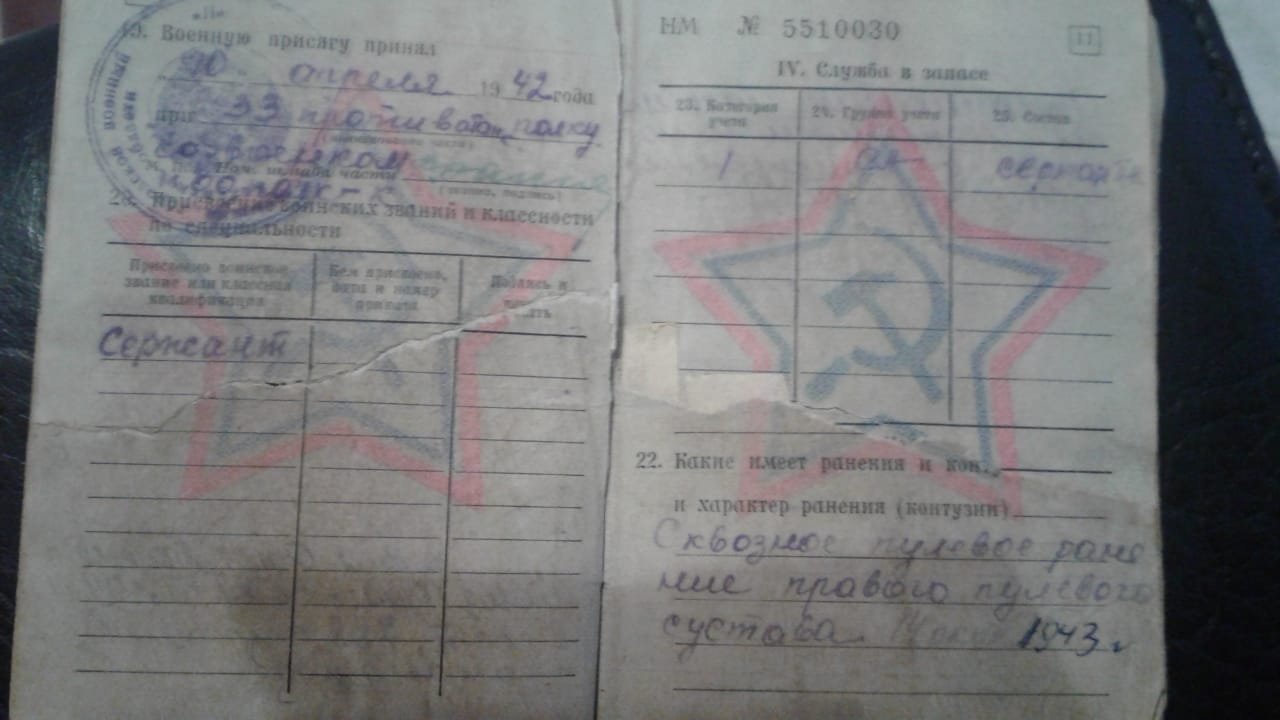 19. Военную присягу принял
апреля 1942 года
при 33 противотан. полку
Нач. штаба части
(звание, подпись)
20. Присвоение воинских званий и классности
по специальности
Присвоено воинское
звание или классная
квалификация
Кем присвоено,
дата и номер
приказа
Подпись и
Сержант
военный
НМ № 5510030
11
IV. Служба в запасе
23. Категория
учета
24. Группа учета
25. Состав
1
22. Какие имеет ранения и кон
и характер ранения (контузии)
Сквозное пулевое ране
ние правого пулевого
сустава 1943 г